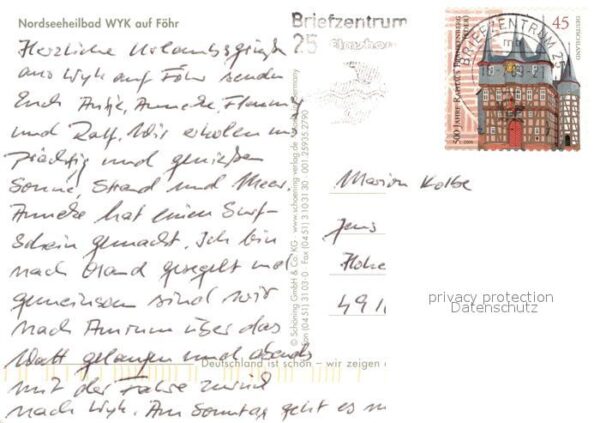 Nordseeheilbad WYK auf Föhr
Herzliche Urlaubsgrüße
aus Wyk auf Föhr senden
Euch Antje, Anneke, Flemming
und Ralf. Wir erholen uns
prächtig und genießen
Sonne, Strand und Meer.
Anneke hat einen Surf-
schein gemacht. Ich bin
nach Oland gesegelt und
gemeinsam sind wir
nach Amrum über das
Watt gelangen und abends
mit der Fähre zurück
nach Wyk. Am Sonntag geht es n
Deutschland ist schön – wir zeigen
© Schöning GmbH & Co. KG · www.schoening-verlag.de
Fon (04 51) 3 10 31-0 · Fax (04 51) 3 10 31 30 001 25935 2790
Briefzentrum
25
BRIEFZENTRUM 25
45
DEUTSCHLAND
500 JAHRE RATHAUS FRANKENBERG
Marion Kolbe
Jens
Hohe
491
privacy protection
Datenschutz